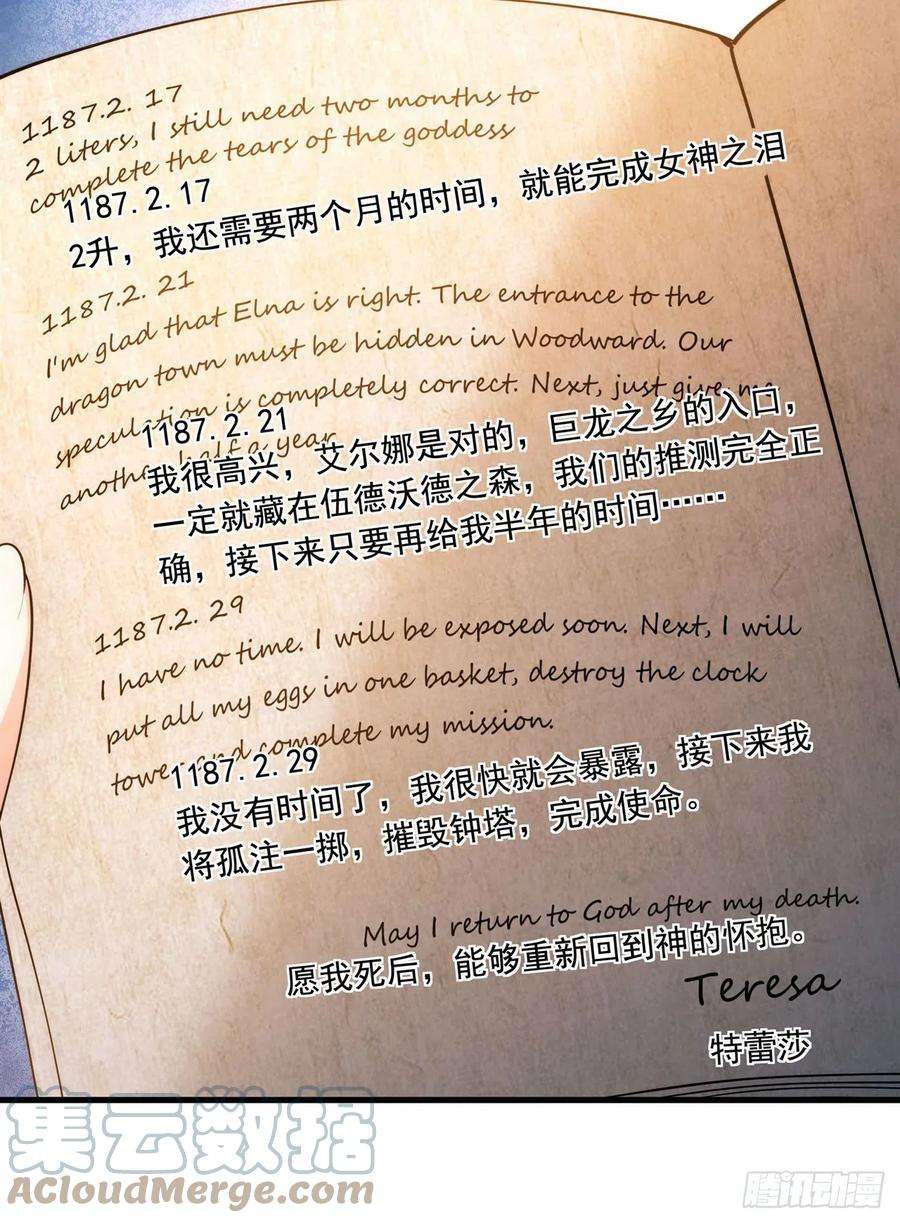 1187.2. 17
2 liters, I still need two months to
complete the tears of the goddess
1187.2.17
2升，我还需要两个月的时间，就能完成女神之泪
1187.2. 21
I'm glad that Elna is right. The entrance to the
dragon town must be hidden in Woodward. Our
speculation is completely correct. Next, just give me
another half a year
1187.2.21
我很高兴，艾尔娜是对的，巨龙之乡的入口，
一定就藏在伍德沃德之森，我们的推测完全正
确，接下来只要再给我半年的时间……
1187.2. 29
I have no time. I will be exposed soon. Next, I will
put all my eggs in one basket, destroy the clock
tower and complete my mission.
1187.2.29
我没有时间了，我很快就会暴露，接下来我
将孤注一掷，摧毁钟塔，完成使命。
May I return to God after my death.
愿我死后，能够重新回到神的怀抱。
Teresa
特蕾莎
集云数据
AcloudMerge.com
腾讯动漫